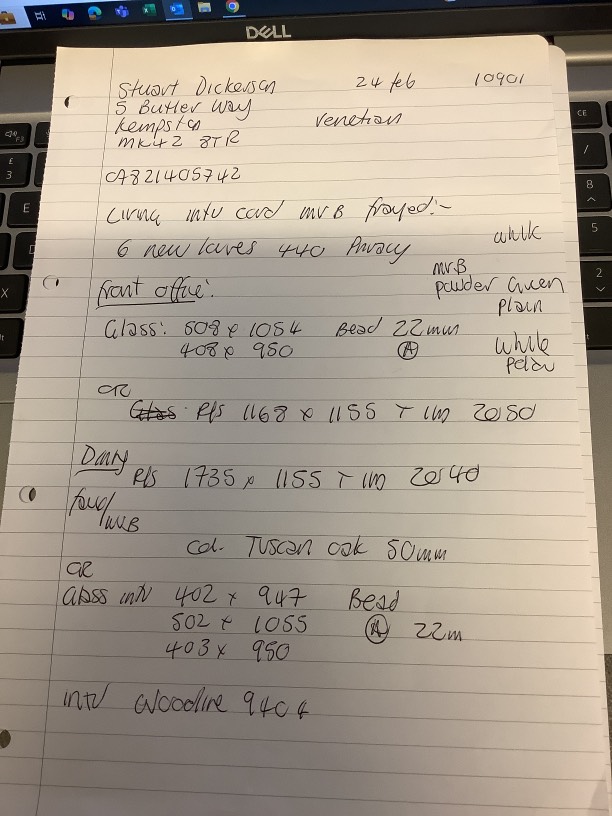 DELL
Stuart Dickerson 24 feb 10901
5 Butler Way
Kempston Venetian
MK42 8TR
07821405742
Living intu cord MVB frayed:-
6 new loves 440 Privacy white
MVB
Front office: powder Green
Plain
Glass: 508 x 1054 Bead 22mm
408 x 950 (A) white
OR
R/S 1168 x 1155 T 1m 20s 50
R/S 1735 x 1155 T 1m 20s 40
WVB
Col. Tuscan oak 50mm
OR
Glass intu 402 x 947 Bead
502 x 1055 (A) 22m
403 x 950
intu Woodline 9404